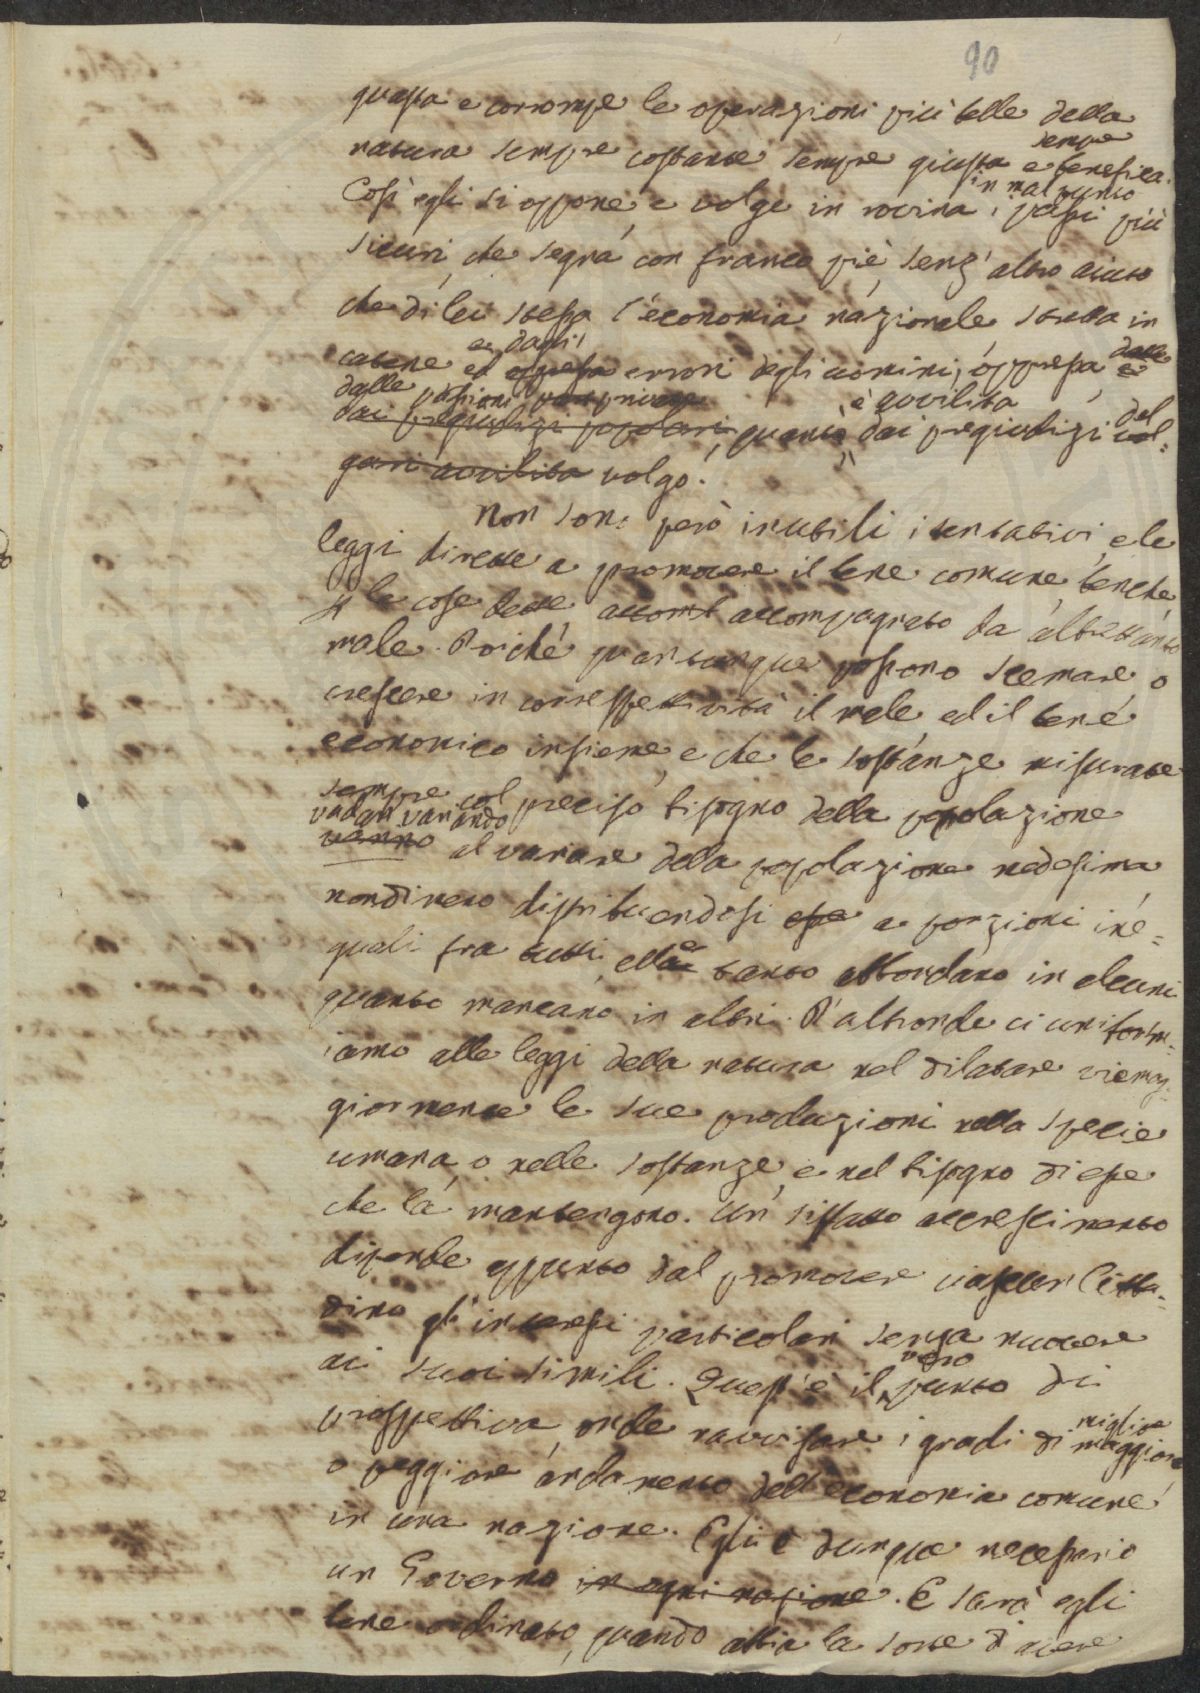 90
guasta e corrompe le operazioni più belle della
natura sempre costante sempre giusta e sempre benefica.
Così egli si oppone, e volge in rovina in mal punto i passi più
sicuri, che segna con franco piè, senz'altro aiuto
che di lei stessa l'economia nazionale stretta in
catene ed oppressa e dagli errori degli uomini, oppressa dalle
dalle passioni
dai pregiudizi popolari, quanto è avvilita dai pregiudizi del vol=
gari avvilita volgo.
Non son però inutili i tentativi, e le
leggi dirette a promovere il bene comune, benchè
p le cose dette, accom accompagnato da altrettanto
male. Poichè quantunque possono scemare, o
crescere in correspettività il male, ed il bene
economico insieme, e che le sostanze misurate
sempre col preciso bisogno della popolazione
vadan variando
vanno al variare della popolazione medesima
nondimeno distribuendosi esse a porzioni ine=
quali fra tutti, elle tanto abbondano in alcuni
quanto mancano in altri. D'altronde ci unifor=
iamo alle leggi della natura nel dilatare viemag=
giormente le sue produzioni nella specie
umana, o nelle sostanze, e nel bisogno di esse
che la mantengono. Un siffatto accrescimento
dipende appunto dal promovere ciascun Citta=
dino gl'interessi particolari senza nuocere
ai suoi simili. Quest'è il vero punto di
prospettiva, onde ravvisare i gradi di migliore maggiore
o peggiore andamento dell'economia comune
in una nazione. Egli è dunque necessario
un Governo in ogni nazione. E sarà egli
bene ordinato, quando abbia la sorte d'avere